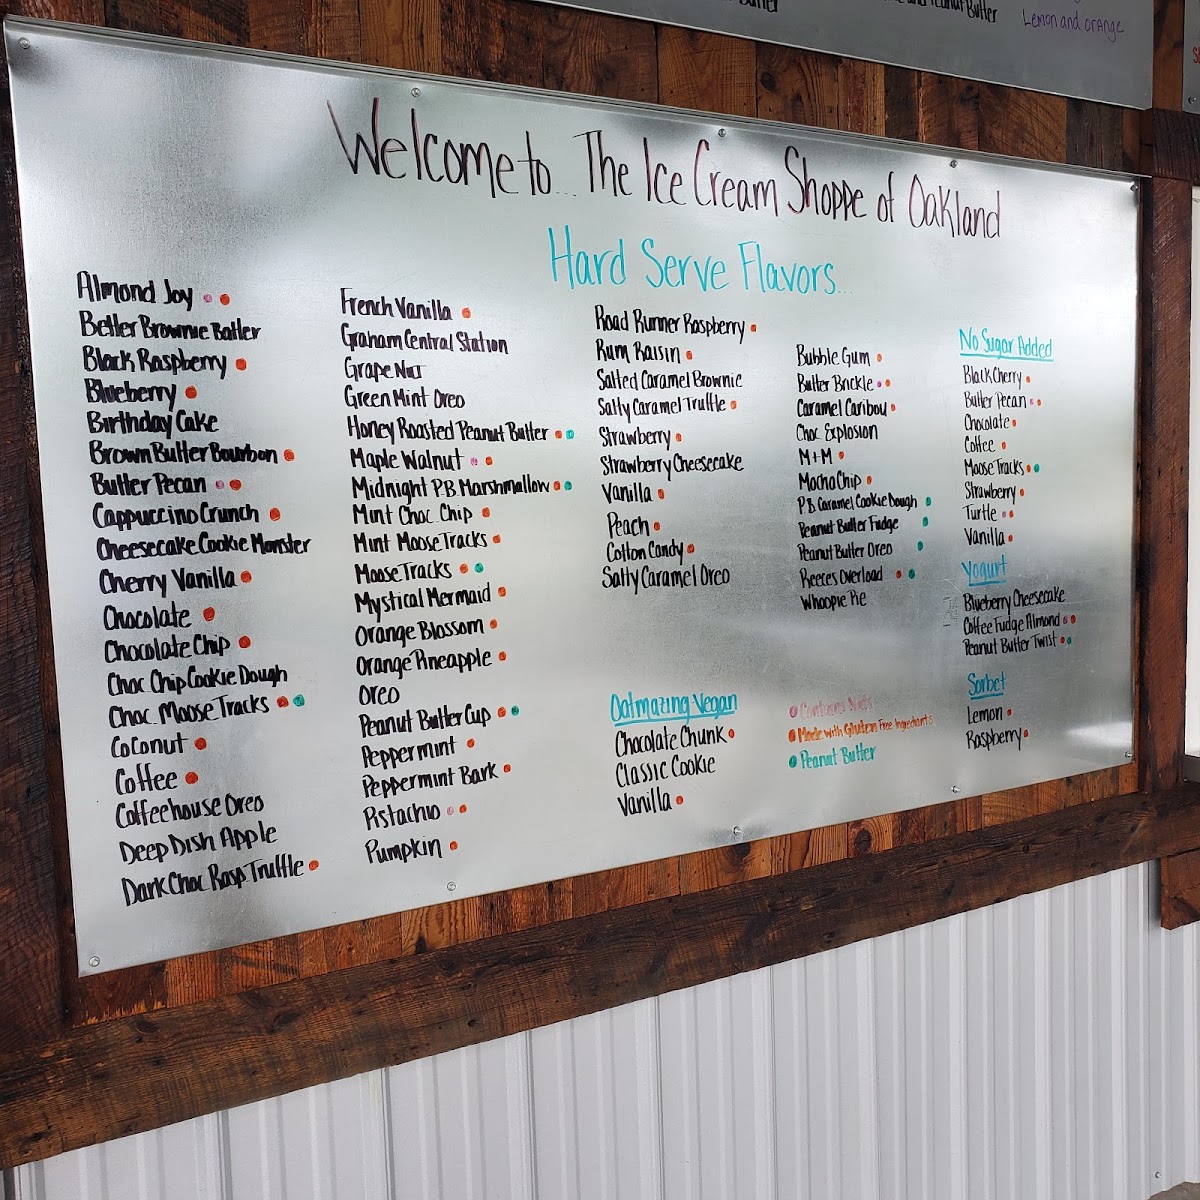 and Peanut Butter
Lemon and orange
Welcome to... The Ice Cream Shoppe of Oakland
Hard Serve Flavors...
Almond Joy
Better Brownie Batter
Black Raspberry
Blueberry
Birthday Cake
Brown Butter Bourbon
Butter Pecan
Cappuccino Crunch
Cheesecake Cookie Monster
Cherry Vanilla
Chocolate
Chocolate Chip
Choc Chip Cookie Dough
Choc. Moose Tracks
Coconut
Coffee
Coffeehouse Oreo
Deep Dish Apple
Dark Choc Rasp Truffle
French Vanilla
Graham Central Station
Grape Nut
Green Mint Oreo
Honey Roasted Peanut Butter
Maple Walnut
Midnight P.B. Marshmallow
Mint Choc. Chip
Mint Moose Tracks
Moose Tracks
Mystical Mermaid
Orange Blossom
Orange Pineapple
Oreo
Peanut Butter Cup
Peppermint
Peppermint Bark
Pistachio
Pumpkin
Road Runner Raspberry
Rum Raisin
Salted Caramel Brownie
Salty Caramel Truffle
Strawberry
Strawberry Cheesecake
Vanilla
Peach
Cotton Candy
Salty Caramel Oreo
Oatmazing Vegan
Chocolate Chunk
Classic Cookie
Vanilla
Bubble Gum
Butter Brickle
Caramel Caribou
Choc Explosion
M+M
Mocha Chip
P.B. Caramel Cookie Dough
Peanut Butter Fudge
Peanut Butter Oreo
Reeces Overload
Whoopie Pie
Contains Nuts
Made with Gluten Free Ingredients
Peanut Butter
No Sugar Added
Black Cherry
Butter Pecan
Chocolate
Coffee
Moose Tracks
Strawberry
Turtle
Vanilla
Yogurt
Blueberry Cheesecake
Coffee Fudge Almond
Peanut Butter Twist
Sorbet
Lemon
Raspberry